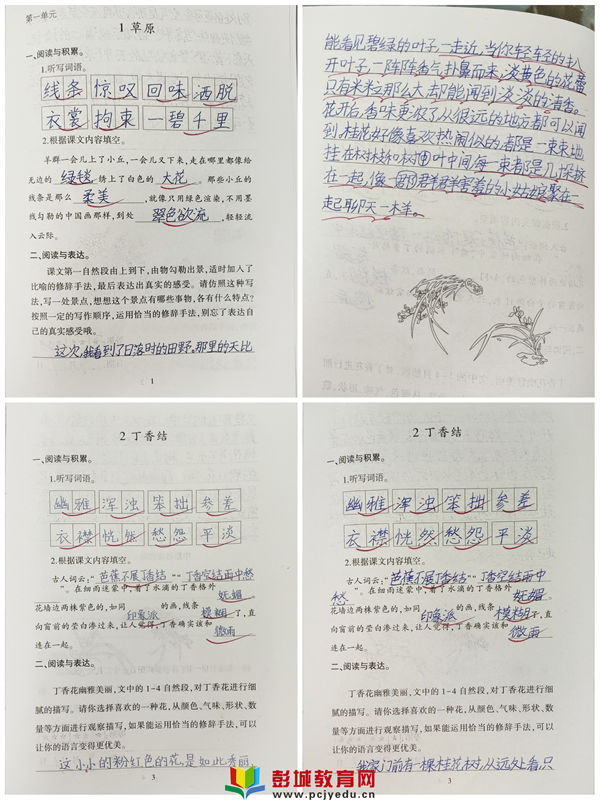 第一单元
1 草原
一、阅读与积累。
1.听写词语。
线条 惊叹 回味 洒脱
衣裳 拘束 一碧千里
2.根据课文内容填空。
羊群一会儿上了小丘,一会儿又下来,走在哪里都像给
无边的 绿毯 绣上了白色的 大花 。那些小丘的
线条是那么 柔美 ,就像只用绿色渲染,不用墨
线勾勒的中国画那样,到处 翠色欲流 ,轻轻流
入云际。
二、阅读与表达。
课文第一自然段由上到下,由物勾勒出景,适时加入了
比喻的修辞手法,最后表达出真实的感受。请仿照这种写
法,写一处景点,想想这个景点有哪些事物,各有什么特点?
按照一定的写作顺序,运用恰当的修辞手法,别忘了表达自
己的真实感受哦。
这次,我看到了日落时的田野。那里的天比
1
能看见碧绿的叶子,走近,当你轻轻的扒
开叶子,一阵阵香气扑鼻而来,淡黄色的花蕾
只有米粒那么大,却能闻到淡淡的清香。
花开后,香味更浓了,从很远的地方都可以闻
到。桂花好像喜欢热闹似的,都是一束束地
挂在树枝和树叶中间,每一束都是几朵挤
在一起,像一群群害羞的小姑娘聚在一
起聊天一样。
2 丁香结
一、阅读与积累。
1.听写词语。
幽雅 浑浊 笨拙 参差
衣襟 恍然 愁怨 平淡
2.根据课文内容填空。
古人词云:“芭蕉不展丁香结”“丁香空结雨中愁
”。在细雨迷蒙中,着了水滴的丁香格外 妩媚
花墙边两株紫色的,如同 印象派 的画,线条 模糊 了,直
向窗前的莹白渗过来,让人觉得,丁香确实该和 微雨
连在一起。
二、阅读与表达。
丁香花幽雅美丽,文中的1-4自然段,对丁香花进行细
腻的描写。请你选择喜欢的一种花,从颜色、气味、形状、数
量等方面进行观察描写,如果能运用恰当的修辞手法,可以
让你的语言变得更优美。
这小小的粉红色的花,是如此秀丽,
3
2 丁香结
一、阅读与积累。
1.听写词语。
幽雅 浑浊 笨拙 参差
衣襟 恍然 愁怨 平淡
2.根据课文内容填空。
古人词云:“芭蕉不展丁香结”“丁香空结雨中
愁”。在细雨迷蒙中,着了水滴的丁香格外 妩媚
花墙边两株紫色的,如同 印象派 的画,线条 模糊 了,直
向窗前的莹白渗过来,让人觉得,丁香确实该和 微雨
连在一起。
二、阅读与表达。
丁香花幽雅美丽,文中的1-4自然段,对丁香花进行细
腻的描写。请你选择喜欢的一种花,从颜色、气味、形状、数
量等方面进行观察描写,如果能运用恰当的修辞手法,可以
让你的语言变得更优美。
我家门前有一棵桂花树,从远处看,只
3
彭城教育网
www.pcjyedu.cn